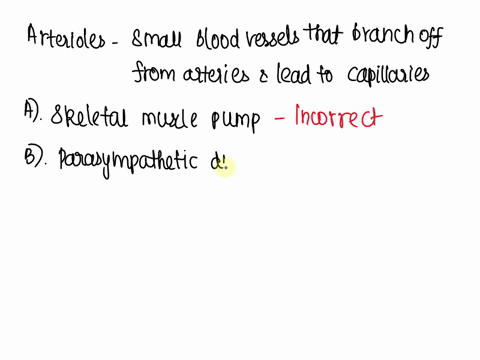 Arterioles - Small blood vessels that branch off
from arteries & lead to capillaries
A). Skeletal muscle pump - Incorrect
B). Parasympathetic di